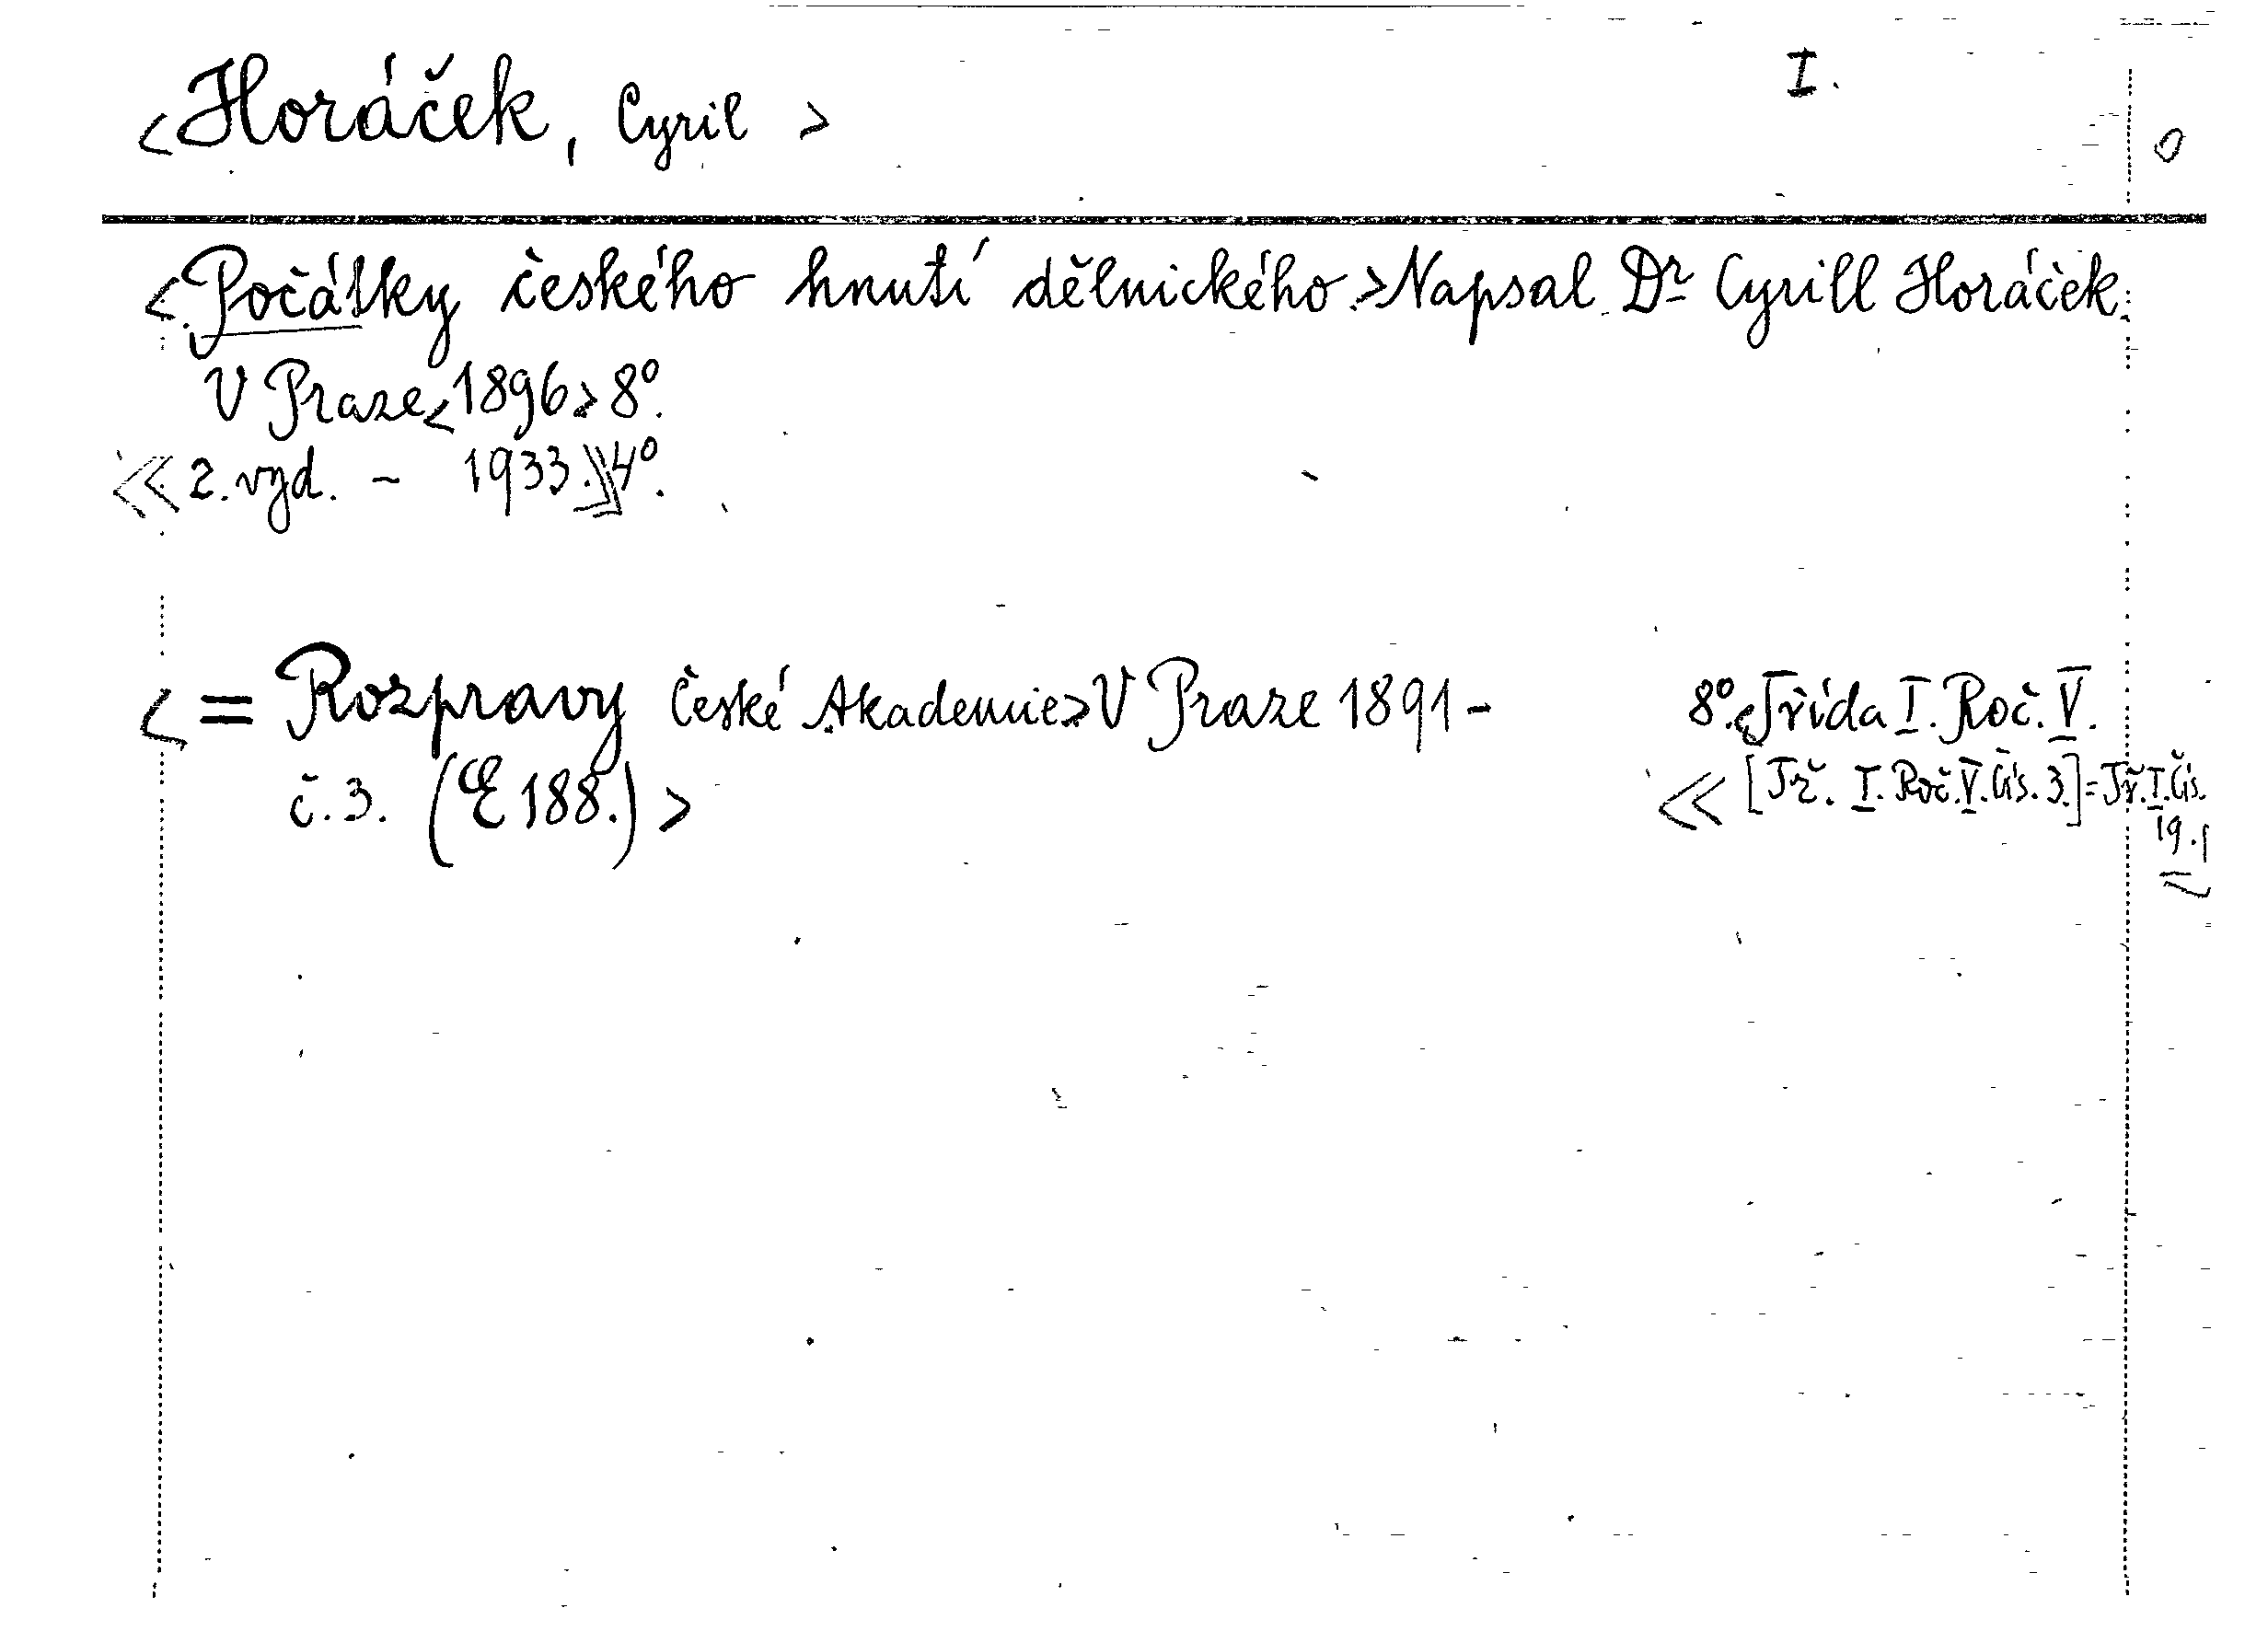 I.
<Horáček, Cyril > 0
<Počátky českého hnutí dělnického.>Napsal Dr Cyrill Horáček.
V Praze<1896>8º.
≪2. vyd. – 1933.≫4º.
<= Rozpravy České Akademie>V Praze 1891- 8º.<Třída I. Roč. V.
č. 3. (E 188.) >
≪[Tř. I. Roč. V. Čís. 3.]=Tř. I. Čís.
19.